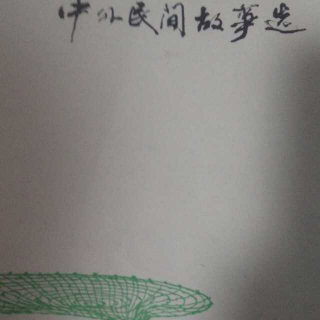 中外民间故事选